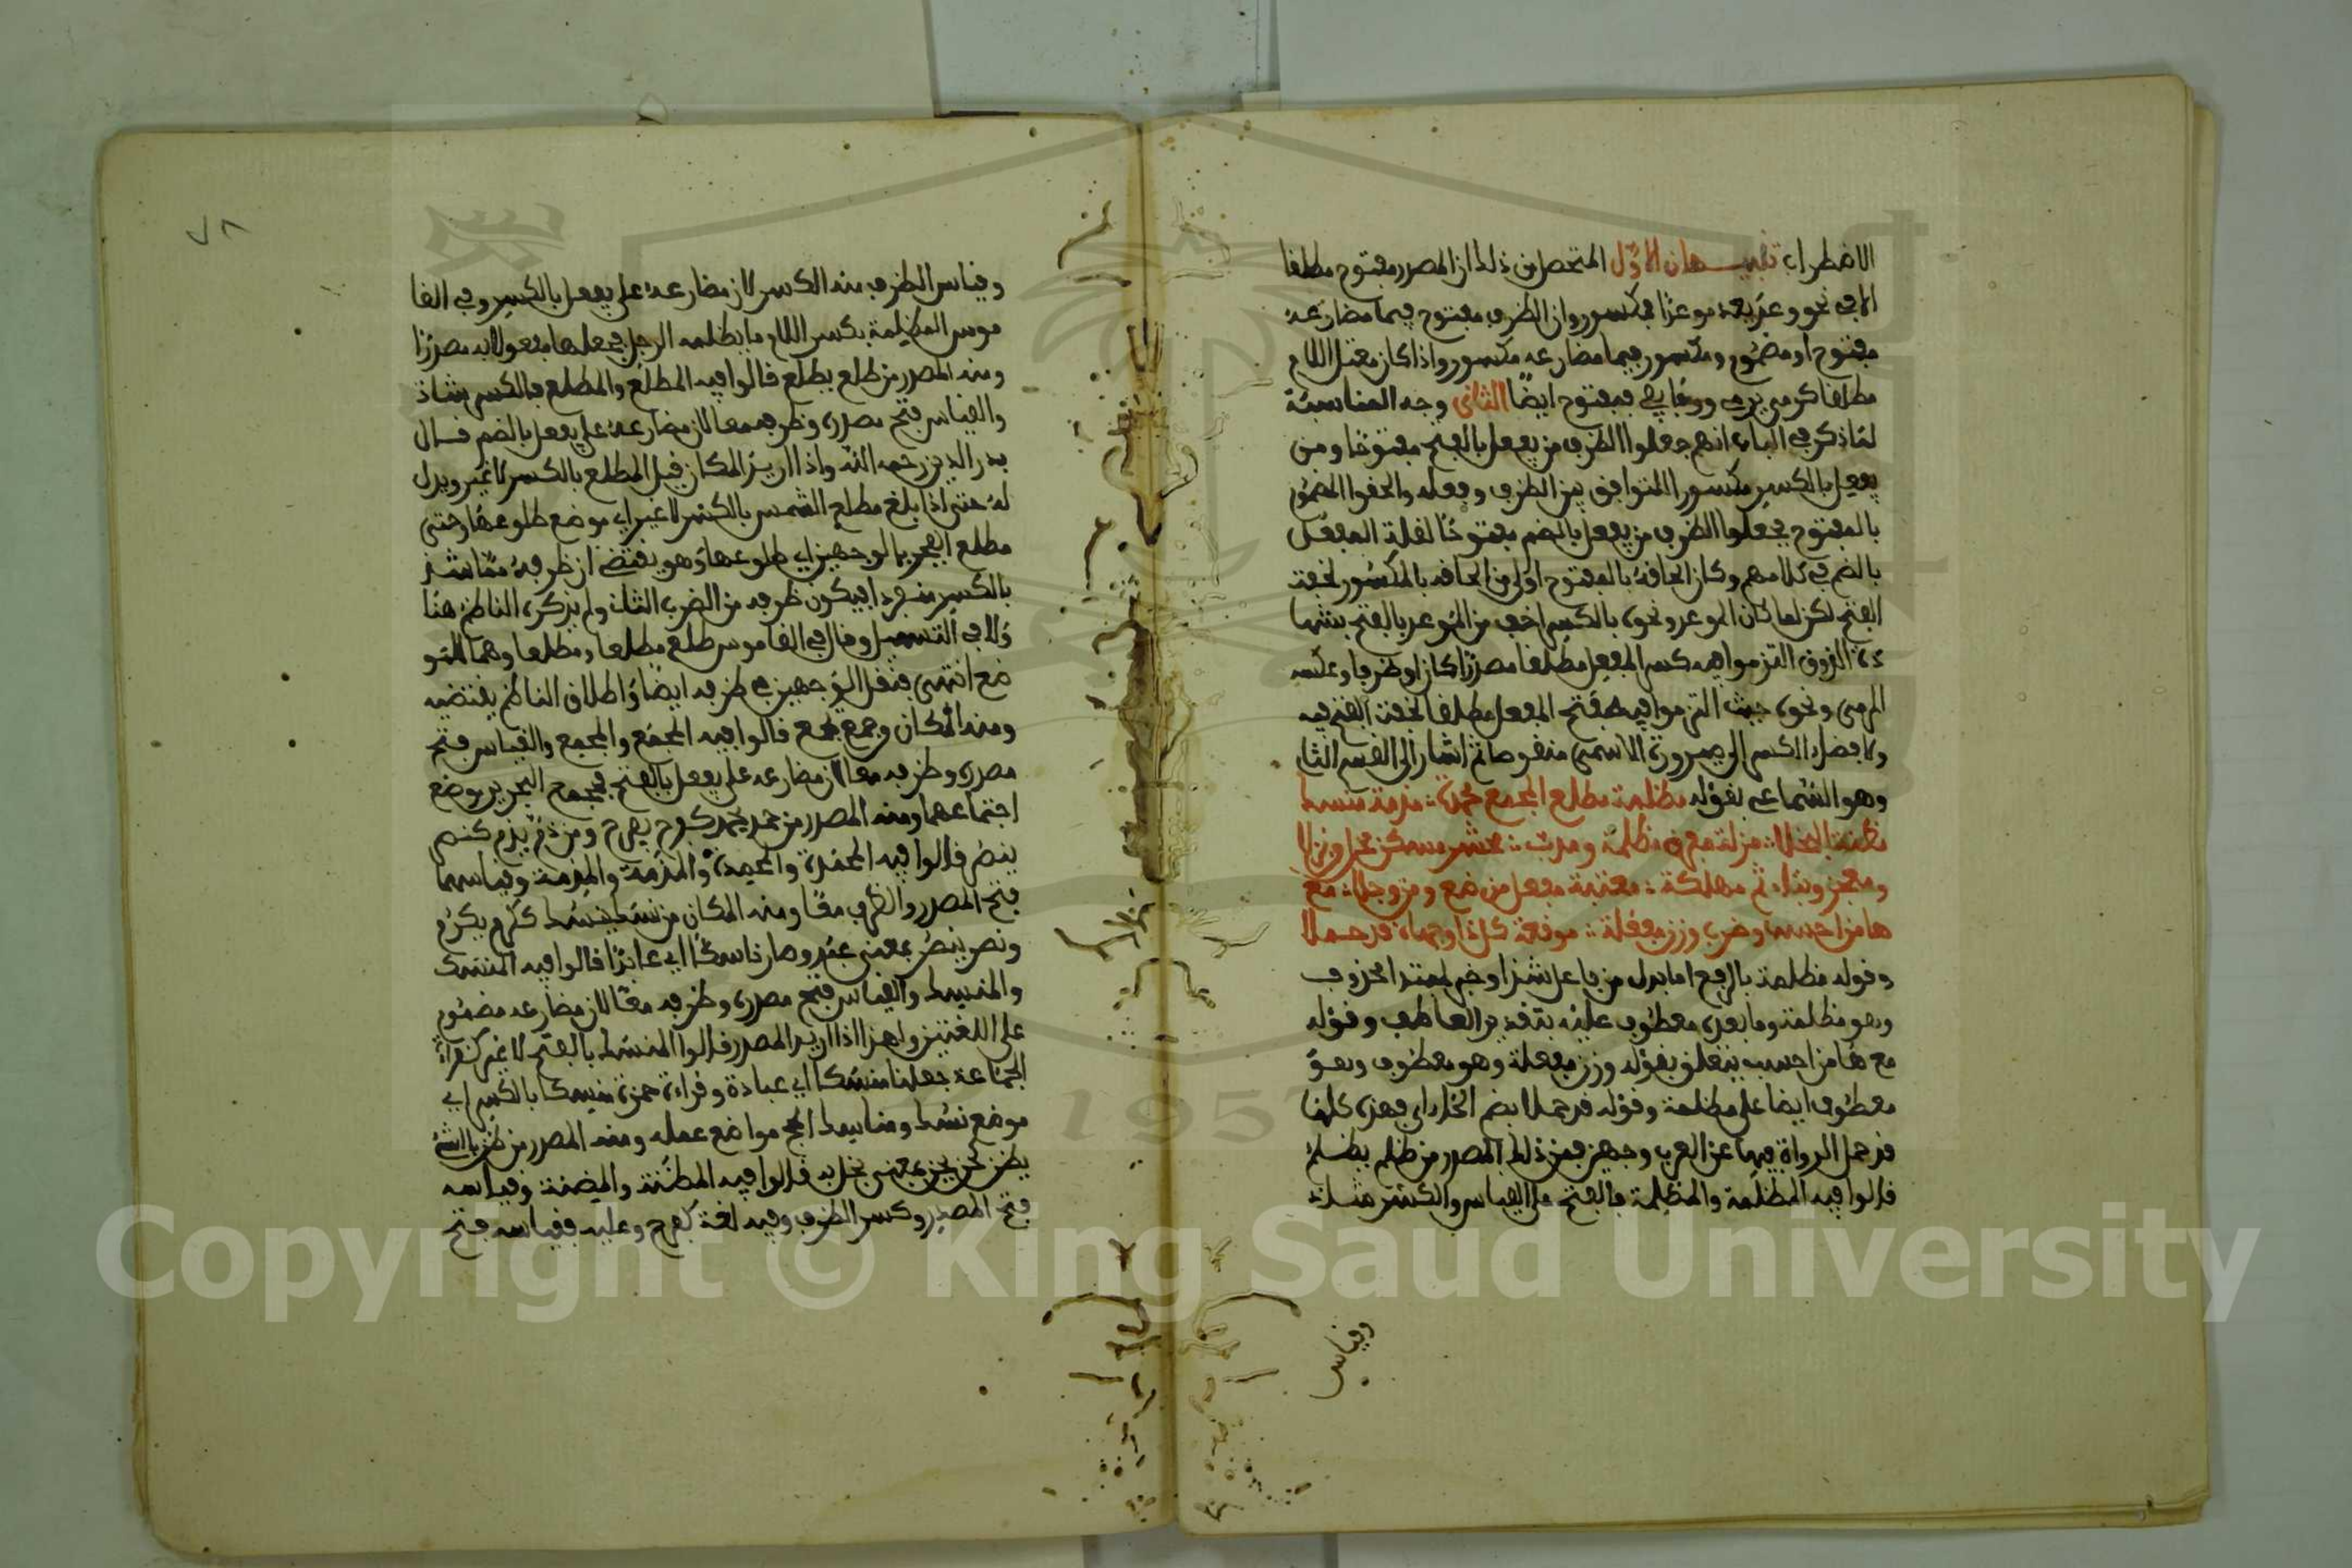 الاضطراب تنبيهان الاول المتحصل من ذلك ان المصدر مفتوح مطلقا
الا في نحو وعد يعد موعدا فمكسور وان الظرف مفتوح فيما مضارعه
مفتوح او مضموم ومكسور فيما مضارعه مكسور واذا كان معتل اللام
مطلقا كرمى يرمي ووقى يقي فمفتوح ايضا الثاني وجه المناسبة
لما ذكر في الباب انهم جعلوا الظرف من يفعل بالفتح مفتوحا ومن
يفعل بالكسر مكسورا للتوافق بين الظرف وفعله والحقوا المضموم
بالمفتوح فجعلوا الظرف من يفعل بالضم مفتوحا لقلة المفعل
بالضم في كلامهم وكان الحاقه بالمفتوح اولى من الحاقه بالمكسور لخفة
الفتح لكن لما كان الموعد ونحوه بالكسر اخف من الموعد بالفتح بشهادة
الذوق التزموا فيه كسر المفعل مطلقا مصدرا كان او ظرفا وعكسه
المرمى ونحوه حيث التزموا فيه فتح المفعل مطلقا لخفة الفتح فيه
ولافضاء الكسر الى صيرورة الاسم منقوصا ثم اشار الى القسم الثاني
وهو السماعي بقوله مظلمة مطلع المجمع محمدة مذمة منسك
مضنة البخلا مزلة مفرق مظلمة ومدب محشر مسكن محل من نزلا
ومعجز وبتاء ثم مهلكة معتبة مفعل من ضع ومن وجلا مع
ها من احسب وضرب وزن مفعلة موقعة كل ذا وجهاه قد حملا
وقوله مظلمة بالرفع اما بدل من فاعل شذ او خبر لمبتدا محذوف
وهو مظلمة وما بعده معطوف عليه بتقدير العاطف وقوله
مع ها من احسب يتعلق بقوله وزن مفعلة وهو معطوف وهو
معطوف ايضا على مظلمة وقوله قد حملا بضم الحاء اي فهذه كلها
قد حمل الرواة فيها عن العرب وجهين فمن ذلك المصدر من ظلم يظلم
قالوا فيه المظلمة والمظلمة فالفتح على القياس والكسر شاذ
وقياس
وقياس الظرف منه الكسر لان مضارعه على يفعل بالكسر وفي القا
موس المظلمة بكسر اللام ما يظلمه الرجل فجعلها مفعولا به مصدرا
ومنه المصدر من طلع يطلع قالوا فيه المطلع والمطلع فالكسر شاذ
والقياس فتح مصدره وظرفه معا لان مضارعه على يفعل بالضم قال
بدر الدين رحمه الله واذا اريد المكان قيل المطلع بالكسر لا غير ويدل
له حتى اذا بلغ مطلع الشمس بالكسر لا غير اي موضع طلوعها وحتى
مطلع الفجر بالوجهين اي طلوعها وهو يقتضي ان ظرفه مما شذ
بالكسر منفردا فيكون ظرفه من الضرب الثالث ولم يذكره الناظم هنا
ولا في التسهيل وقال في القاموس طلع مطلعا ومطلعا وهما للمو
ضع انتهى فنقل الوجهين في ظرفه ايضا واطلاق الناظم يقتضيه
ومنه المكان من جمع يجمع قالوا فيه المجمع والمجمع والقياس فتح
مصدره وظرفه معا لان مضارعه على يفعل بالفتح فمجمع البحرين موضع
اجتماعهما ومنه المصدر من حمد يحمد كفرح يفرح ومن ذم يذم كنصر
ينصر قالوا فيه المحمدة والمحمدة والمذمة والمذمة وقياسهما
فتح المصدر والظرف معا ومنه المكان من نسك ينسك ككرم يكرم
ونصر ينصر بمعنى عبد وصار ناسكا اي عابدا قالوا فيه المنسك
والمنسك والقياس فتح مصدره وظرفه معا لان مضارعه مضموم
على اللغتين واهذا اذا اريد المصدر قالوا المنسك بالفتح لا غير كقراءة
الجماعة جعلنا منسكا اي عبادة وقراءة حمزة منسكا بالكسر اي
موضع نسك ومناسك الحج مواضع عمله ومنه المصدر من ضن بالشيء
يضن كحن يحن بمعنى بخل به قالوا فيه المضنة والمضنة وقياسه
فتح المصدر وكسر الظرف وفيه لغة كفرح وعليه فقياسه فتح
Copyright © King Saud University
1957